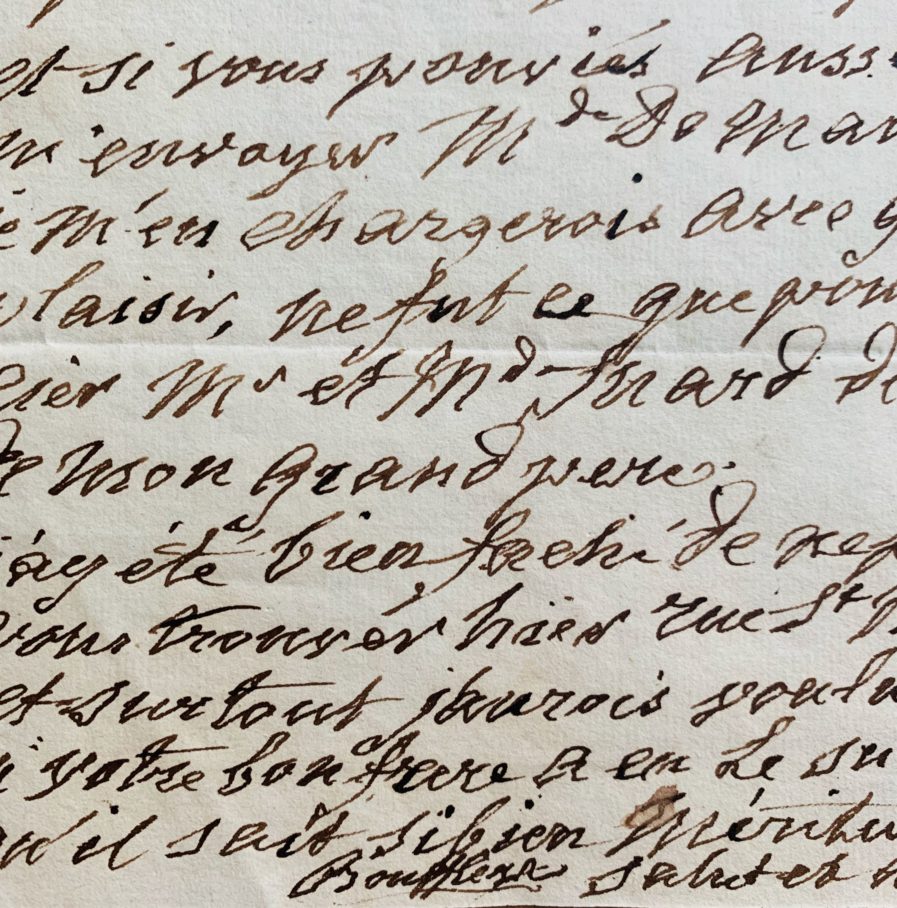 et si vous pouviés auss
m'envoyer Mde De Mar
je m'en chargerois avec g
plaisir, ne fut ce que pour
lier Mr et Md Suard de
de mon grand pere.
j'ay été bien faché de ne p
vous trouver hier rue St h
et surtout j'aurois voulu
si votre bon frere a eu Le su
qu'il sait si bien meriter
Boufflers salut et